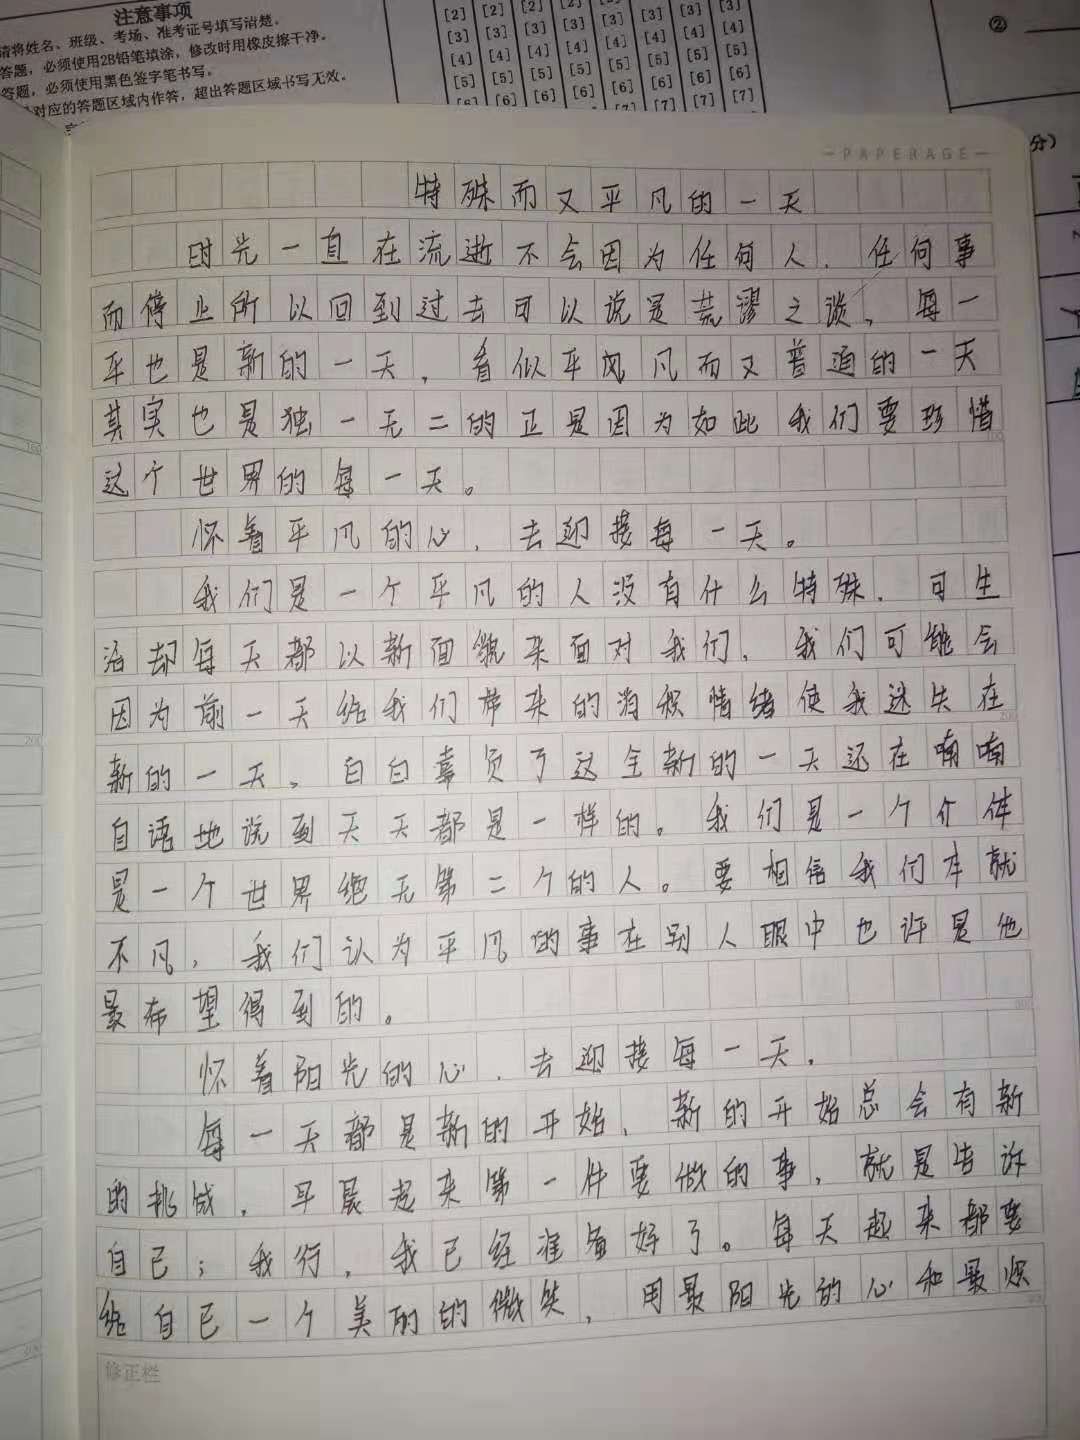 注意事项
请将姓名、班级、考场、准考证号填写清楚。
答题，必须使用2B铅笔填涂，修改时用橡皮擦干净。
答题，必须使用黑色签字笔书写。
对应的答题区域内作答，超出答题区域书写无效。
[2] [2] [2] [2] [2] [2] [3]
[3] [3] [3] [3] [3] [3] [3]
[4] [4] [4] [4] [4] [4] [4]
[5] [5] [5] [5] [5] [5] [5]
[6] [6] [6] [6] [6] [6] [6]
[7] [7]
②
分)
PAPERAGE
特殊而又平凡的一天
时光一直在流逝不会因为任何人、任何事
而停止所以回到过去可以说是荒谬之谈，每一
年也是新的一天，看似平凤凡而又普通的一天
其实也是独一无二的正是因为如此我们要珍惜
这个世界的每一天。
怀着平凡的心，去迎接每一天。
我们是一个平凡的人没有什么特殊，可生
活却每天都以新面貌来面对我们，我们可能会
因为前一天给我们带来的消积情绪使我迷失在
新的一天，白白辜负了这全新的一天还在喃喃
自语地说到天天都是一样的。我们是一个个体
是一个世界绝无第二个的人。要相信我们本就
不凡，我们认为平凡的事在别人眼中也许是他
最希望得到的。
怀着阳光的心，去迎接每一天，
每一天都是新的开始，新的开始总会有新
的挑战，早晨起来第一件要做的事，就是告诉
自己；我行，我已经准备好了。每天起来都要
给自己一个美丽的微笑，用最阳光的心和最
修正栏